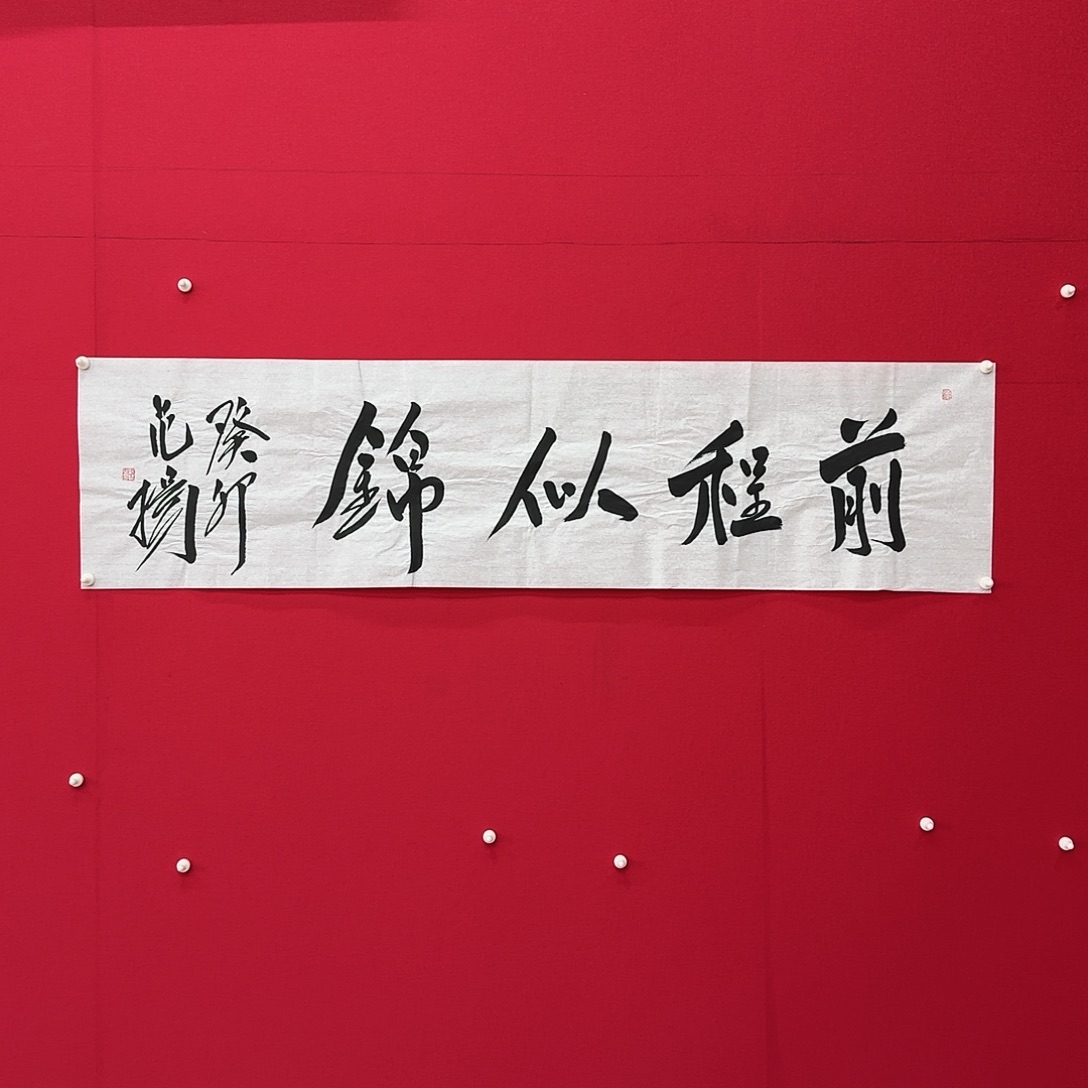 前程似錦
癸卯
范揚